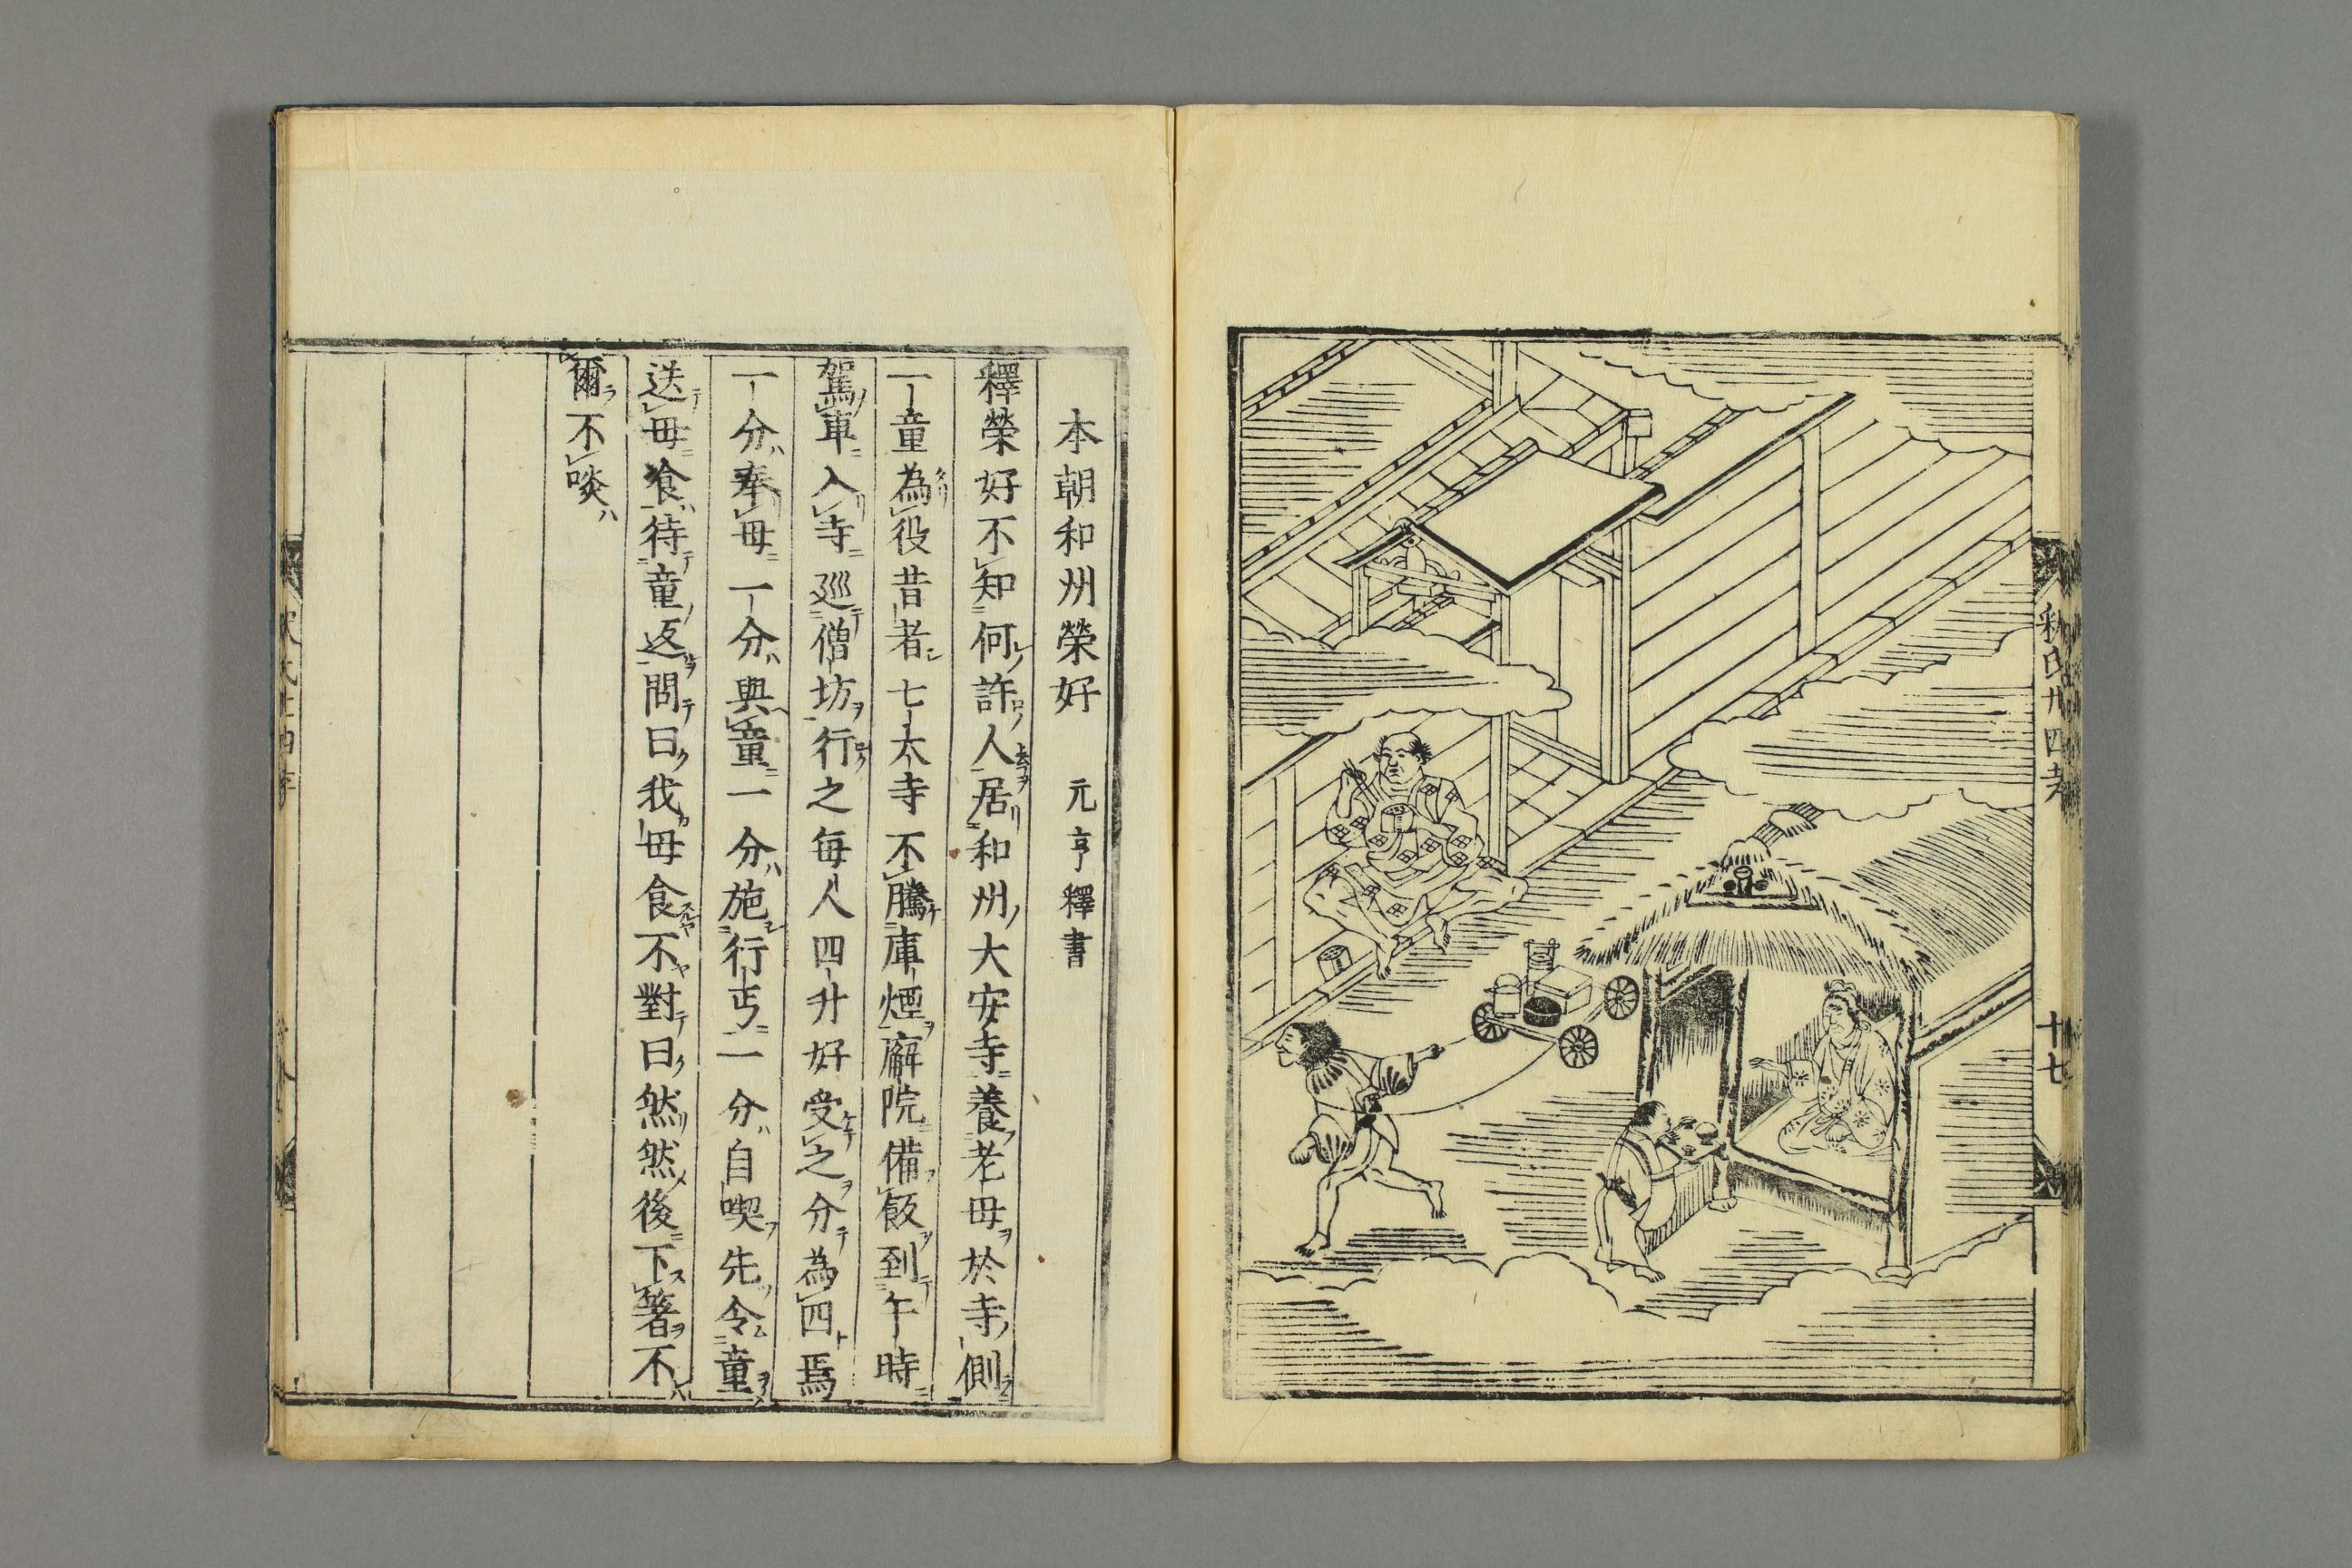 釋氏廿四孝
十七
本朝和州榮好　元亨釋書
釋榮好不知何許人居和州大安寺養老母於寺側
一童為役昔者七大寺不騰庫煙廨院備飯到午時
駕車入寺巡僧坊行之每人四升好受之分為四焉
一分奉母一分與童一分施行丐一分自喫先令童
送母飡待童返問曰我母食不對曰然然後下箸不
爾不啖